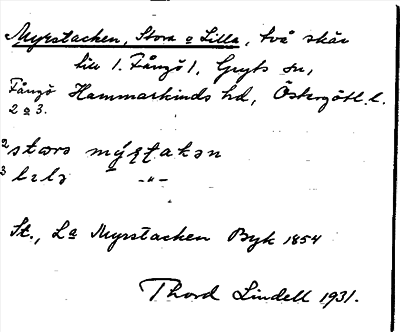 Myrstacken, Stora o Lilla, två skär
till 1. Fångö 1, Gryts sn,
Fångö Hammarkinds hd, Östergötl. l.
2 o 3.
2 stora mýrstakən
3 lɩlə –„–
St., La Myrstacken Byk 1854
Thord Lindell 1931.